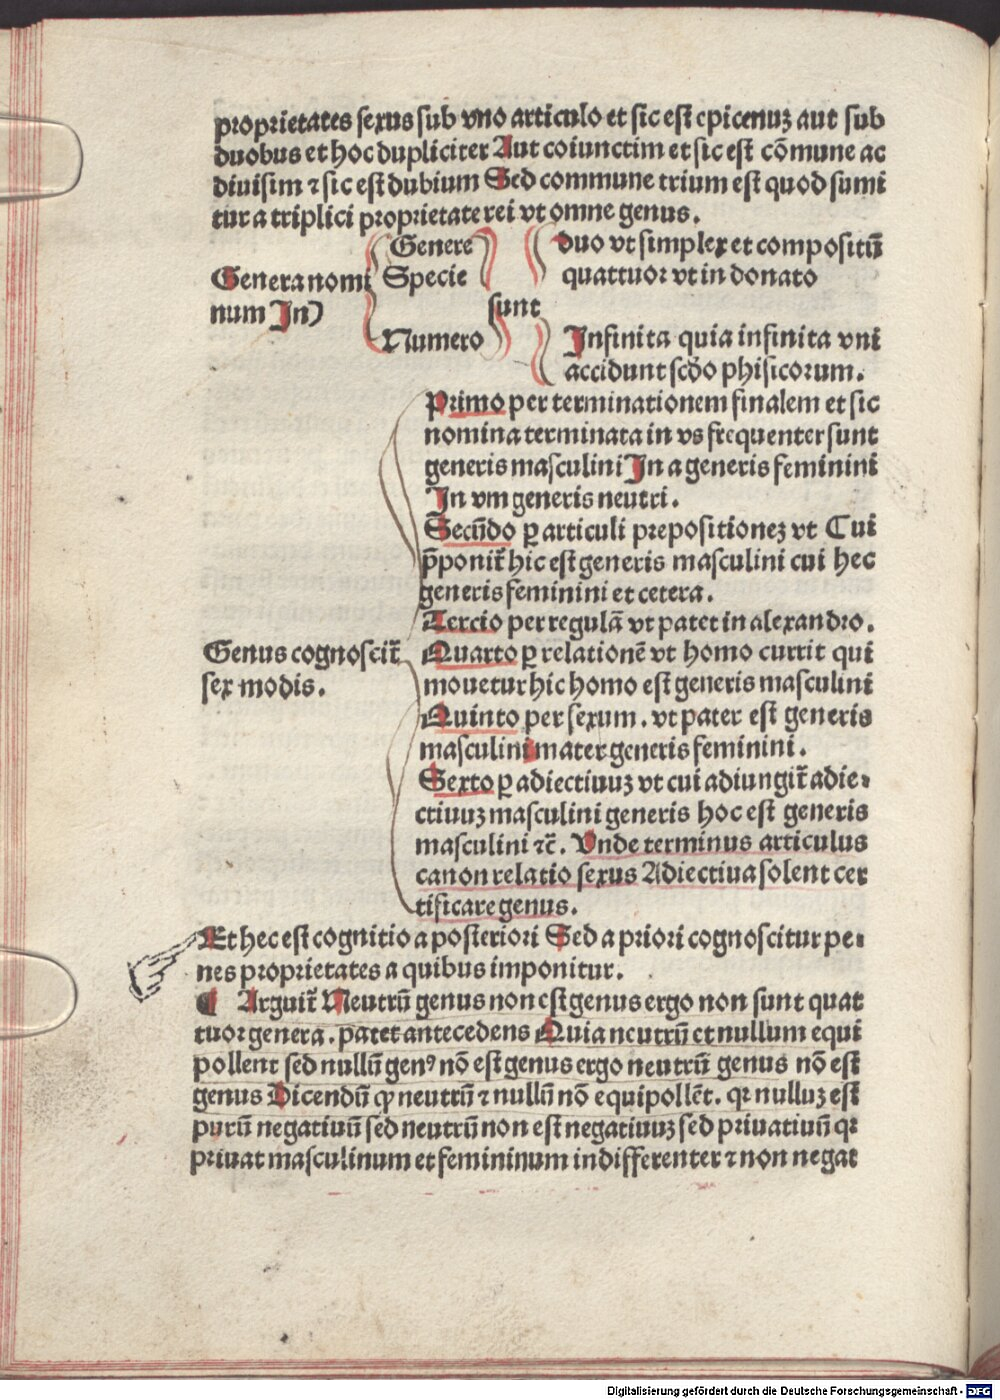 proprietates sexus sub vno articulo et sic est epicenuꝫ aut sub
duobus et hoc dupliciter Aut coiunctim et sic est cōmune ac
diuisim ⁊ sic est dubium Sed commune trium est quod sumi
tur a triplici proprietate rei vt omne genus.
Genera nomi
num In
Genere
Specie
Numero
sunt
duo vt simplex et compositū
quattuor vt in donato
Infinita quia infinita vni
accidunt scďo phisicorum.
Genus cognoscit᷑
sex modis.
Primo per terminationem finalem et sic
nomina terminata in vs frequenter sunt
generis masculini In a generis feminini
In vm generis neutri.
Secūdo ꝑ articuli prepositionez vt Cui
p̄ponit᷑ hic est generis masculini cui hec
generis feminini et cetera.
Tercio per regulā vt patet in alexandro.
Quarto ꝑ relationē vt homo currit qui
mouetur hic homo est generis masculini
Quinto per sexum. vt pater est generis
masculini mater generis feminini.
Sexto ꝑ adiectiuuꝫ vt cui adiungit᷑ adie⸗
ctiuuꝫ masculini generis hoc est generis
masculini ⁊c̄. Vnde terminus articulus
canon relatio sexus Adiectiua solent cer
tificare genus.
Et hec est cognitio a posteriori Sed a priori cognoscitur pe⸗
nes proprietates a quibus imponitur.
¶ Arguit᷑ Neutrū genus non est genus ergo non sunt quat
tuor genera. patet antecedens Quia neutrū et nullum equi
pollent sed nullū genꝰ nō est genus ergo neutrū genus nō est
genus Dicendū ꝙ neutrū ⁊ nullū nō equipollēt. qꝛ nulluꝫ est
purū negatiuū sed neutrū non est negatiuuꝫ sed priuatiuū qꝛ
priuat masculinum et femininum indifferenter ⁊ non negat
Digitalisierung gefördert durch die Deutsche Forschungsgemeinschaft - DFG